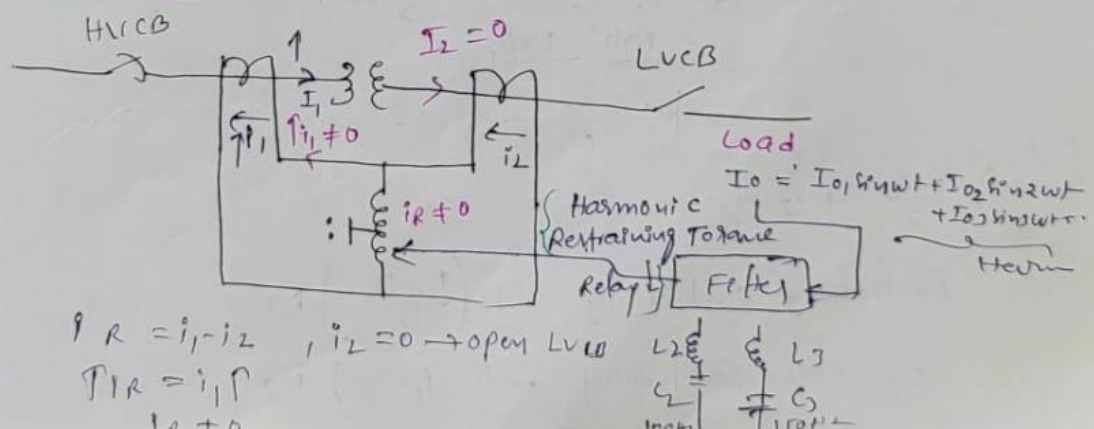 HVCB
I2 = 0
LVCB
I1
i1 ≠ 0
i2
Load
I0 = I01 sinwt + I02 sin2wt
+ I03 sin3wt..
iR ≠ 0
Harmonic
Restraining Torque
Relay
Filter
iR = i1 - i2 , i2 = 0 → open LVCB
↑iR = i1↑
iR ≠ 0
L2
L3
C2
C3